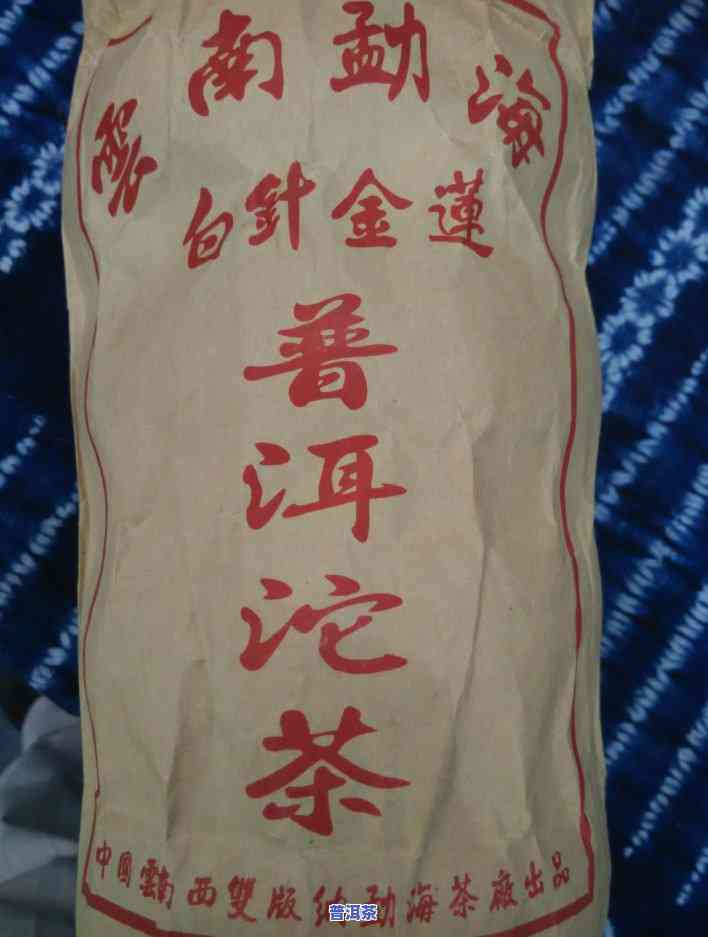 雲南勐海
白針金蓮
普洱沱茶
中國雲南西雙版納勐海茶廠出品
普洱茶